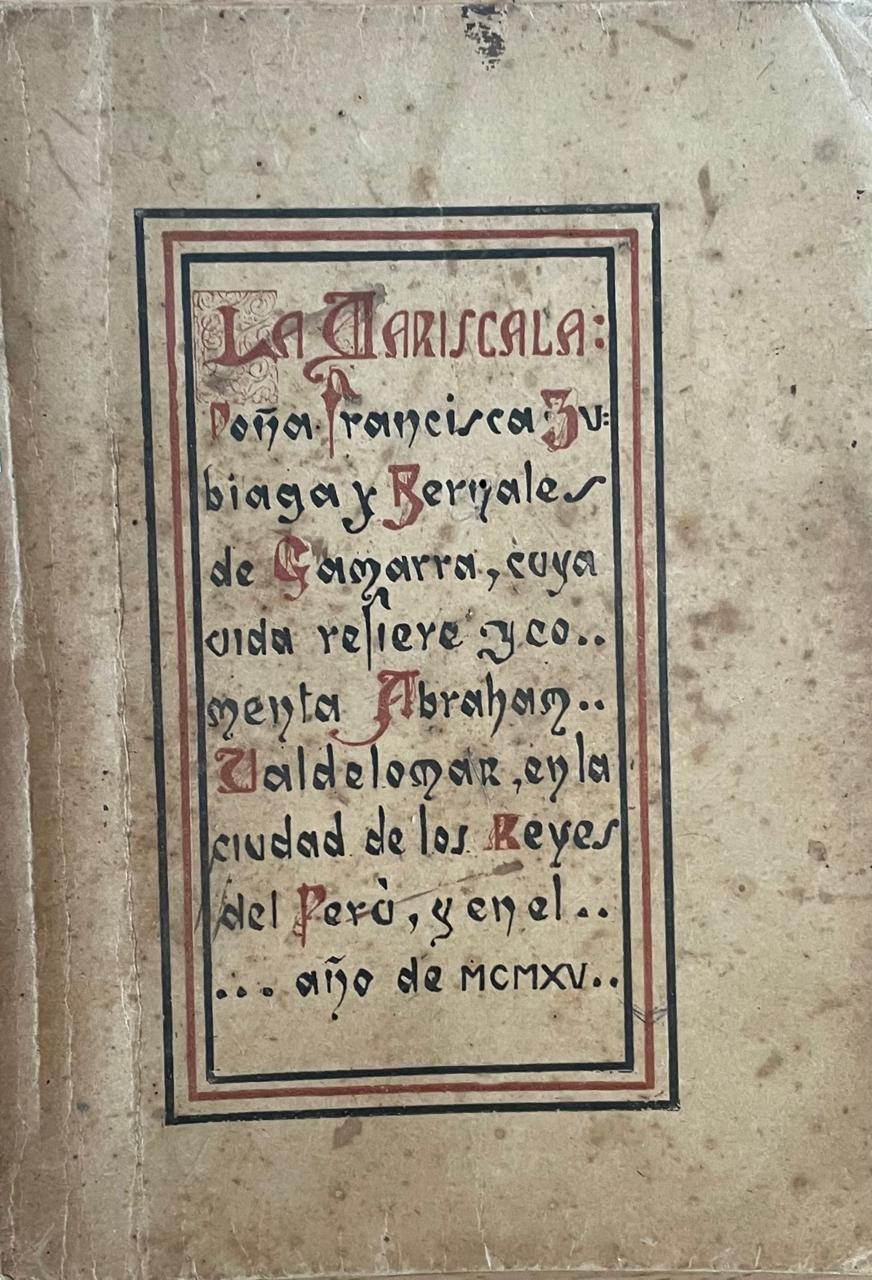 LA MARISCALA:
Doña Francisca Zu:
biaga y Bernales
de Gamarra, cuya
vida refiere y co..
menta Abraham..
Valdelomar, en la
ciudad de los Reyes
del Perù, y en el..
... año de MCMXV..